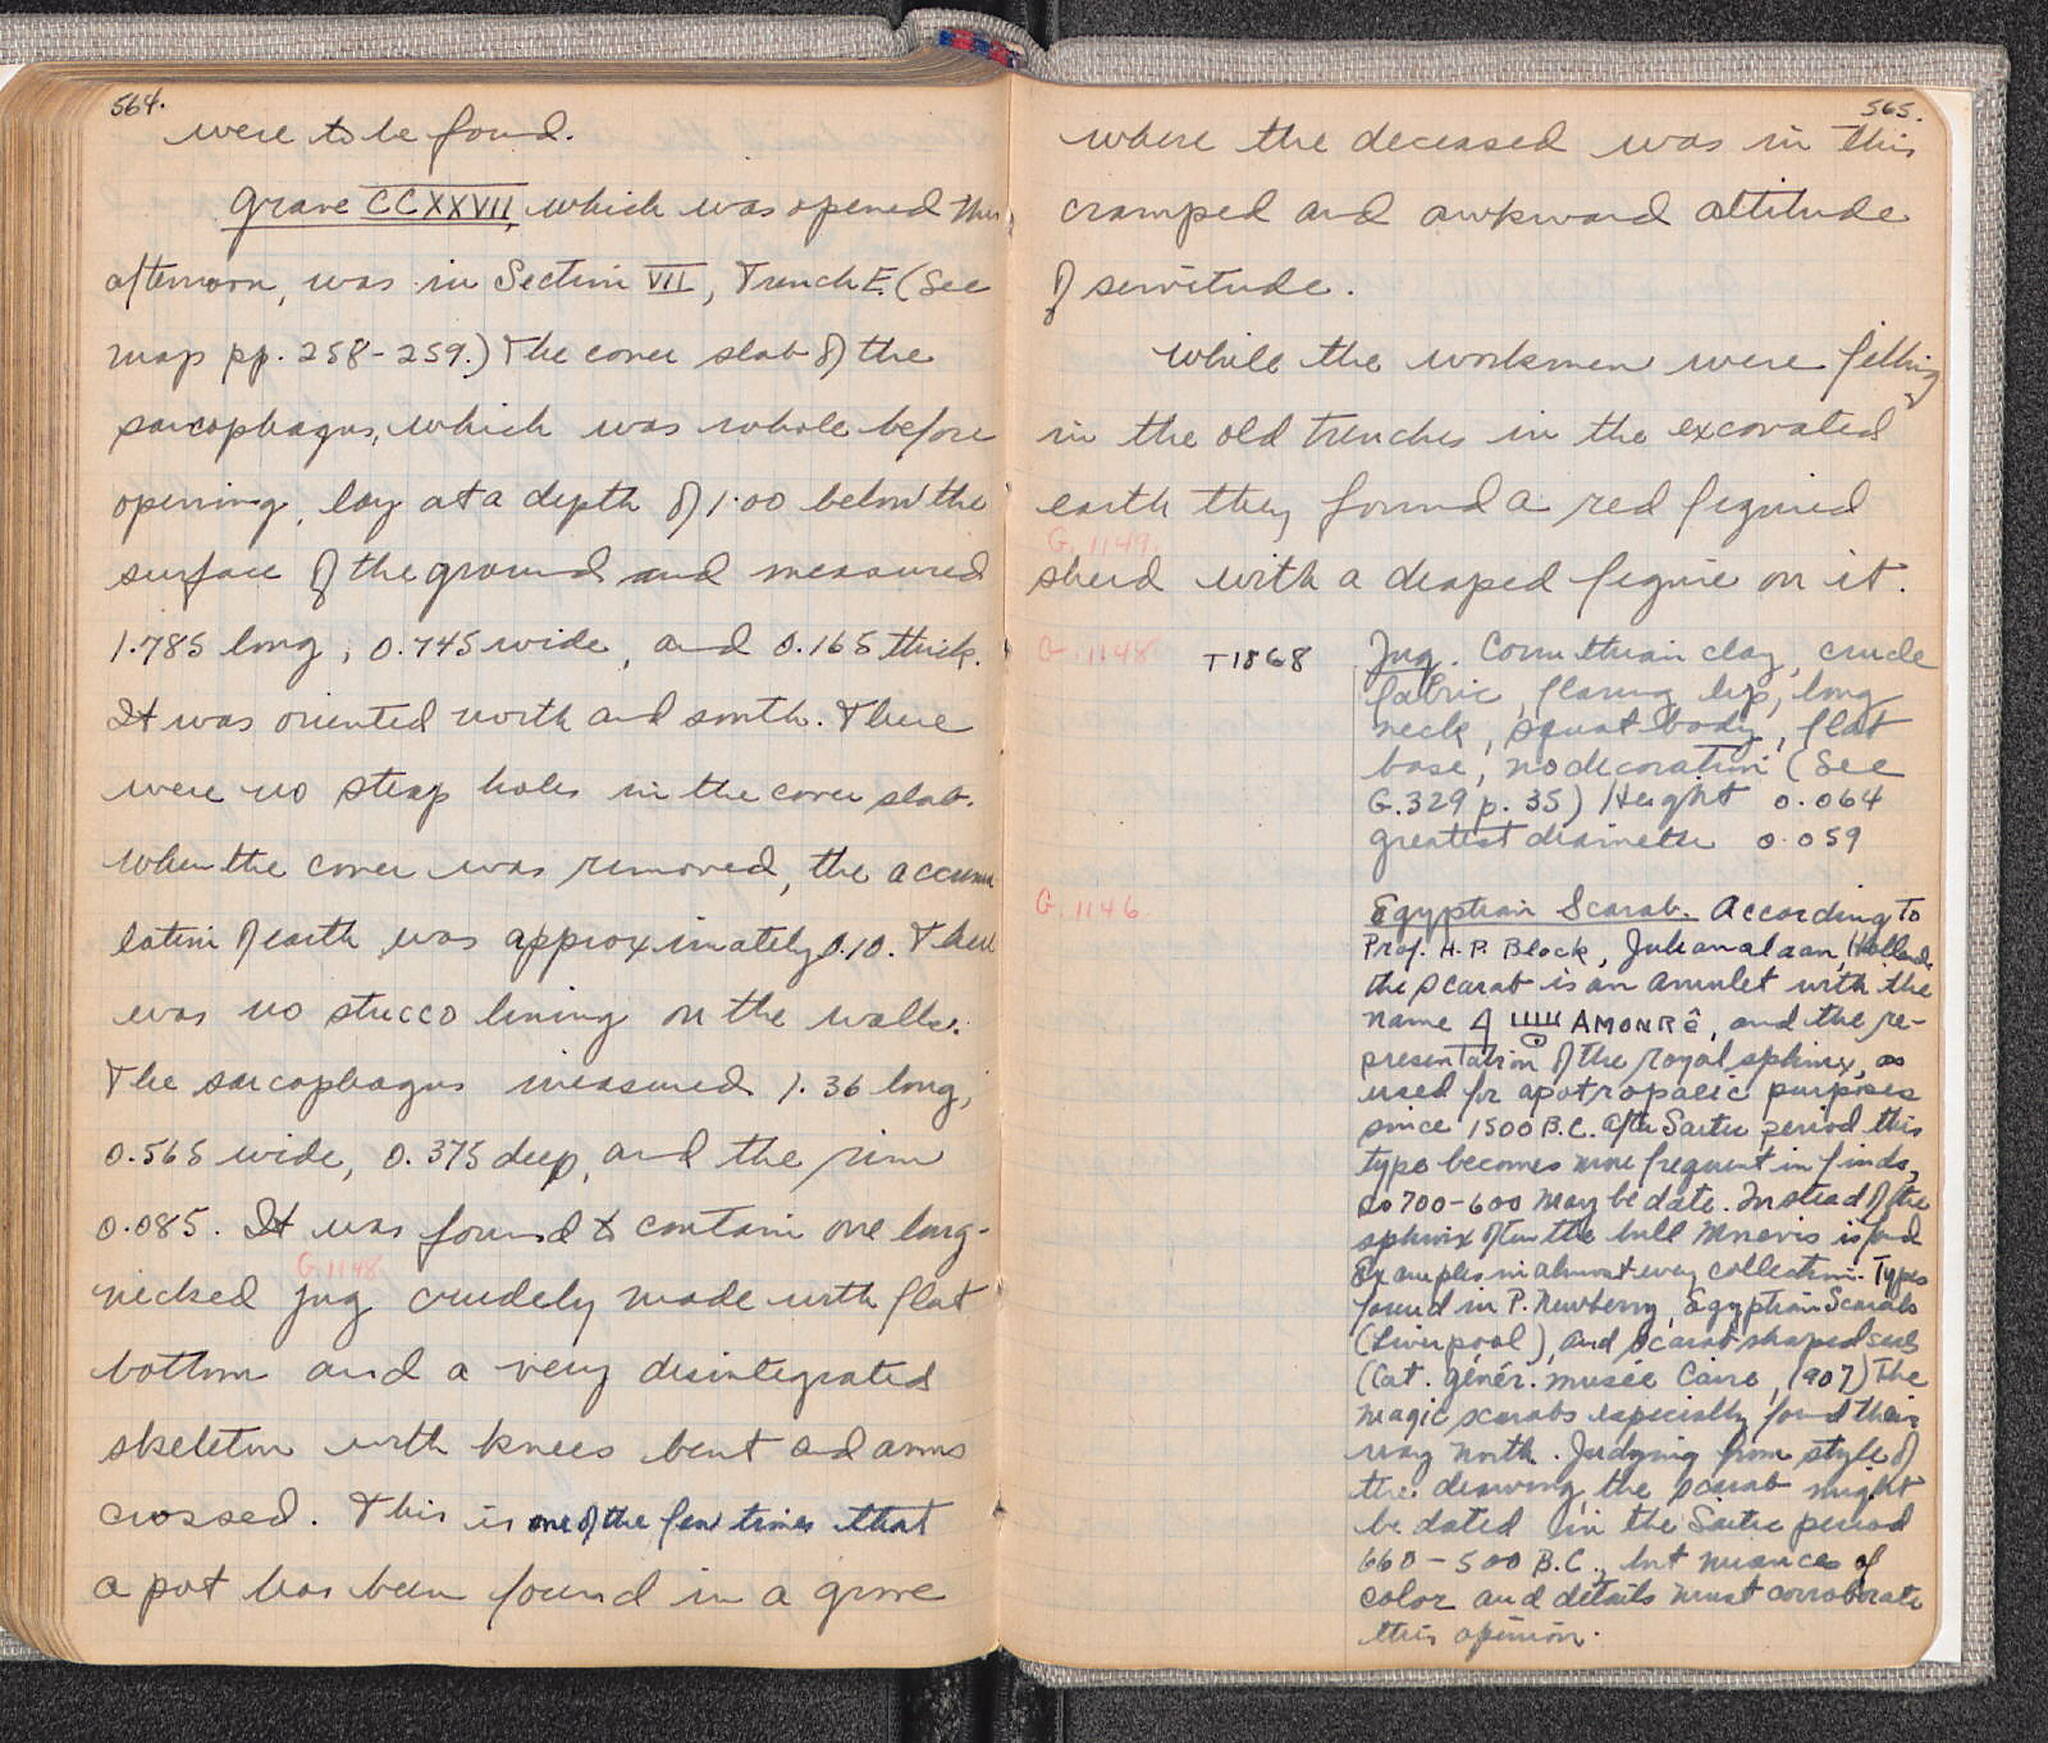 564.
were to be found.
Grave CCXXVII, which was opened this
afternoon, was in Section VII, Trench E. (See
map pp. 258-259.) The cover slab of the
sarcophagus, which was whole before
opening, lay at a depth of 1.00 below the
surface of the ground and measured
1.785 long, 0.745 wide, and 0.165 thick.
It was oriented north and south. There
were no strap holes in the cover slab.
When the cover was removed, the accumu
lation of earth was approximately 0.10. There
was no stucco lining on the walls.
The sarcophagus measured 1.36 long,
0.565 wide, 0.375 deep, and the rim
0.085. It was found to contain one long-
G. 1148
necked jug crudely made with flat
bottom and a very disintegrated
skeleton with knees bent and arms
crossed. This is one of the few times that
a pot has been found in a grave
565.
where the deceased was in this
cramped and awkward attitude
of servitude.
While the workmen were filling
in the old trenches in the excavated
earth they found a red figured
G. 1149.
sherd with a draped figure on it.
G. 1148 T1868 Jug. Corinthian clay, crude
fabric, flaring lip, long
neck, squat body, flat
base, no decoration (See
G. 329 p. 35) Height 0.064
greatest diameter 0.059
G. 1146 Egyptian Scarab. According to
Prof. H. P. Block, Julianalaan, Holland.
the scarab is an amulet with the
name AMONRÊ, and the re-
presentation of the royal sphinx, as
used for apotropaeic purposes
since 1500 B.C. After Saitic period this
type becomes more frequent in finds,
so 700-600 may be date. Instead of the
sphinx often the bull Mnevis is found
Examples in almost every collection. Types
found in P. Newberry, Egyptian Scarabs
(Liverpool), and scarab shaped seals
(Cat. génér. musée Caire, 1907) The
magic scarabs especially found their
way north. Judging from style of
the drawing, the scarab might
be dated in the Saitic period
660-500 B.C., but nuances of
color and details must corroborate
this opinion.